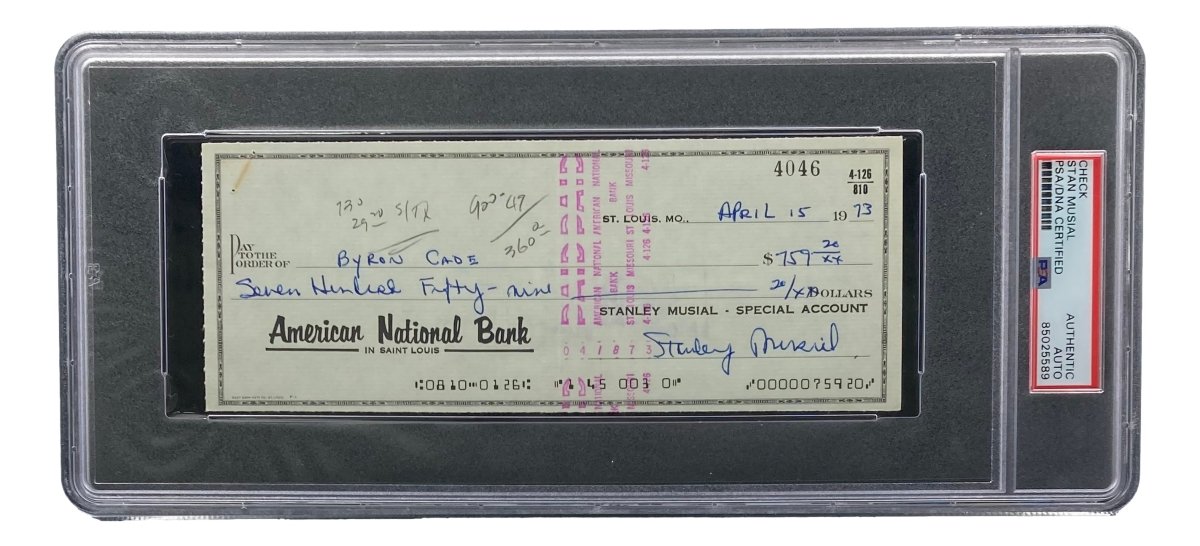 4046
4-126
810
730 S/TX
29 20
900 - 417
360 0
ST. LOUIS, MO., APRIL 15 19 73
PAY TO THE ORDER OF BYRON CADE $759 20/XX
Seven Hundred Fifty-nine 20/XX DOLLARS
STANLEY MUSIAL - SPECIAL ACCOUNT
American National Bank
IN SAINT LOUIS
Stanley Musial
041873
⑆0810⑉0126⑆ ⑈1 45 003 0⑈ ⑈0000075920⑈
AMERICAN NATIONAL BANK
ST LOUIS MISSOURI
4-126
CHECK
STAN MUSIAL
PSA/DNA CERTIFIED
PSA
AUTHENTIC
AUTO
85025589